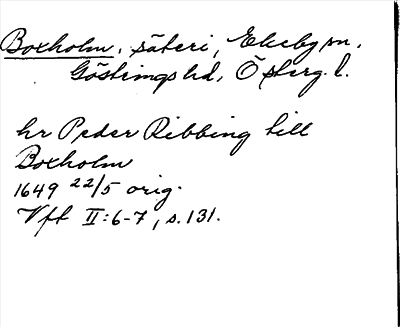 Boxholm, säteri, Ekeby sn.
Göstrings hd, Österg. l.
hr Peder Ribbing till
Boxholm
1649 22/5 orig.
Vfl II:6-7, s. 131.